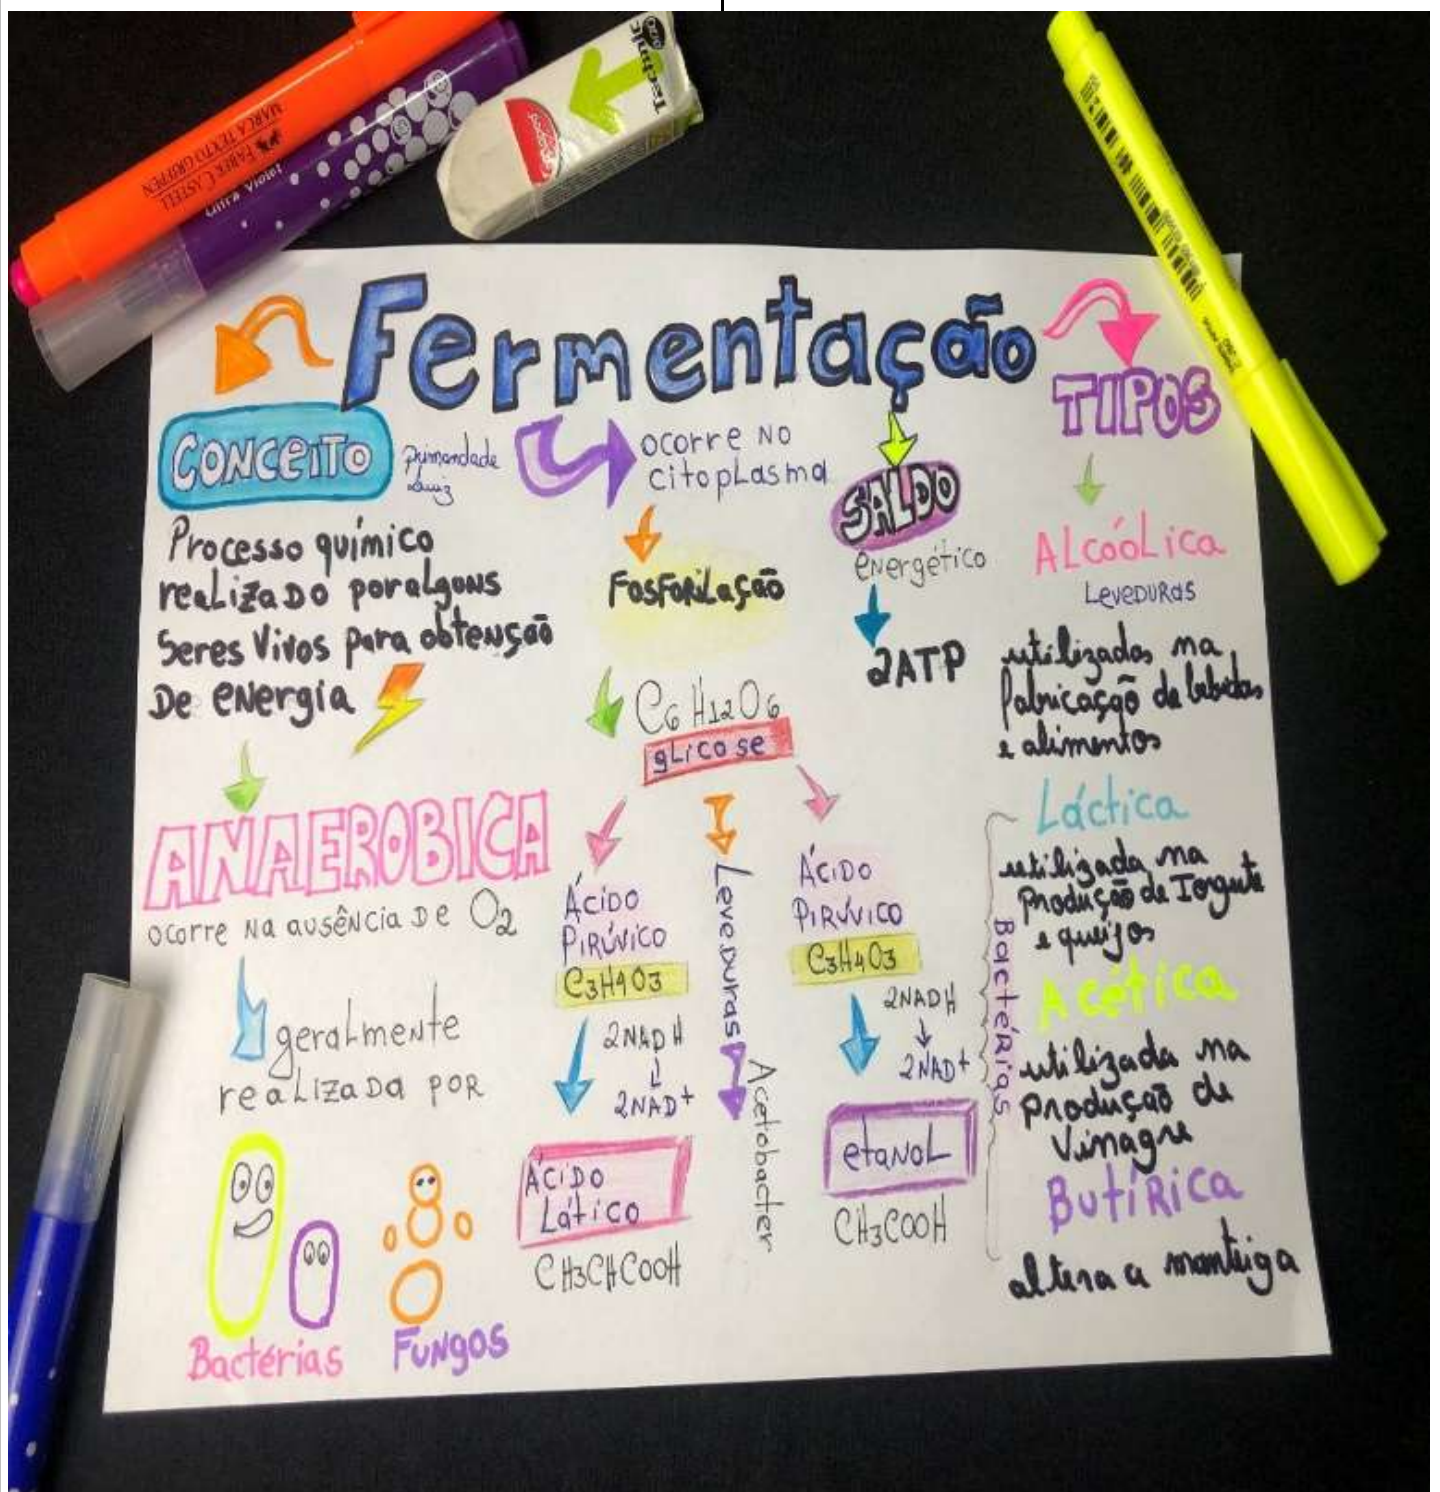 MARCA TEXTO GRIFPEN
FABER CASTELL
Ultra Violet
Tecnic
Fermentação
CONCEITO
Processo químico
realizado por alguns
Seres Vivos para obtenção
De energia
ANAEROBICA
ocorre na ausência de O2
geralmente
realizada por
Bactérias
Fungos
ocorre no
citoplasma
Fosforilação
C6H12O6
glicose
Ácido
Pirúvico
C3H4O3
2NADH
2NAD+
Ácido
Lático
CH3CHCOOH
Leveduras
Acetobacter
Ácido
Pirúvico
C3H4O3
2NADH
2NAD+
etanol
CH3COOH
SALDO
energético
2ATP
TIPOS
Alcóolica
Leveduras
utilizadas na
fabricação de bebidas
e alimentos
Bactérias
Láctica
utilizada na
Produção de Iorgute
e queijos
Acética
utilizada na
Produção de
Vinagre
Butírica
altera a manteiga